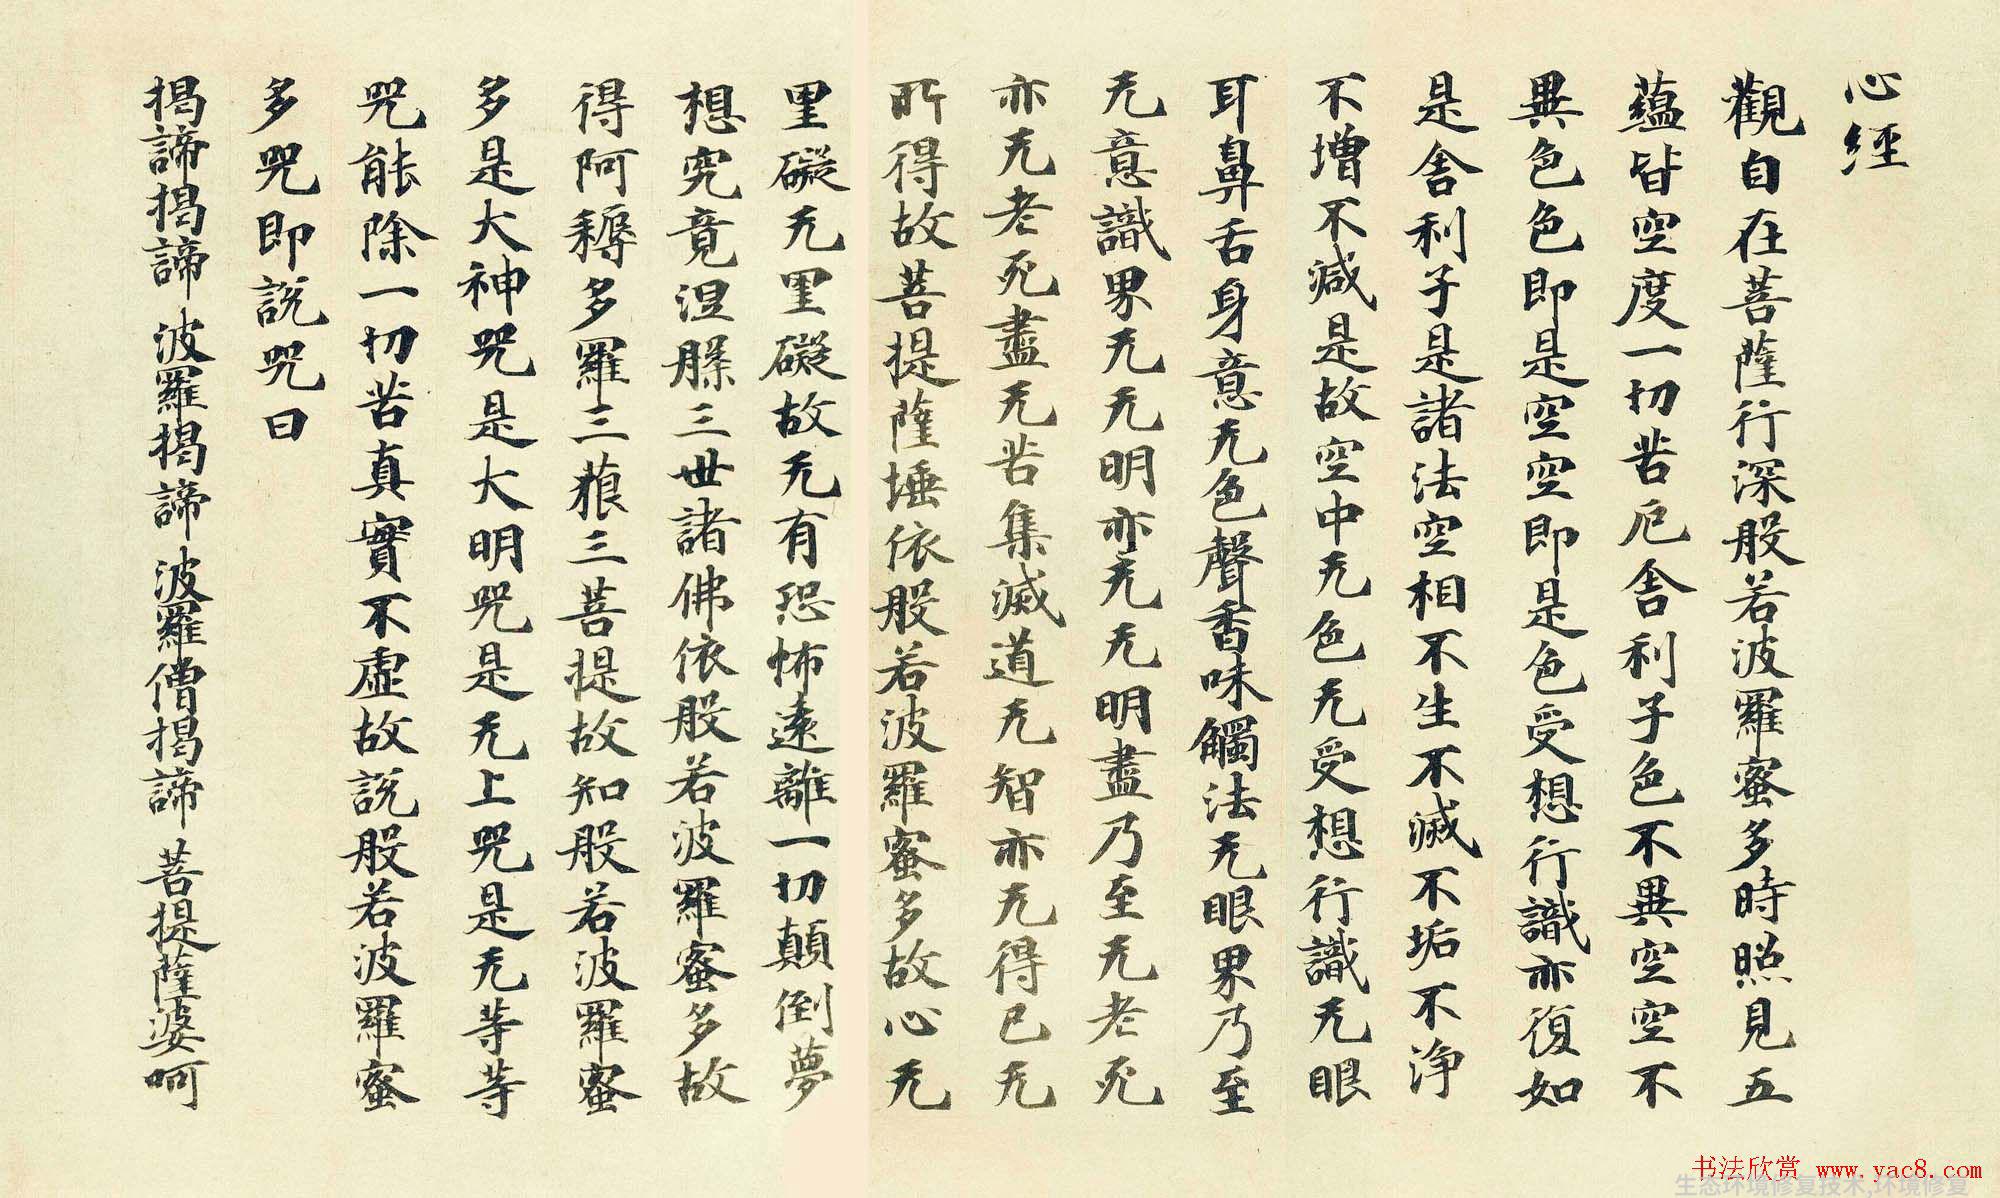 心經
觀自在菩薩行深般若波羅蜜多時照見五
蘊皆空度一切苦厄舍利子色不異空空不
異色色即是空空即是色受想行識亦復如
是舍利子是諸法空相不生不滅不垢不淨
不增不減是故空中无色无受想行識无眼
耳鼻舌身意无色聲香味觸法无眼界乃至
无意識界无无明亦无无明盡乃至无老死
亦无老死盡无苦集滅道无智亦无得已无
所得故菩提薩埵依般若波羅蜜多故心无
罣礙无罣礙故无有恐怖遠離一切顛倒夢
想究竟涅槃三世諸佛依般若波羅蜜多故
得阿耨多羅三藐三菩提故知般若波羅蜜
多是大神咒是大明咒是无上咒是无等等
咒能除一切苦真實不虛故說般若波羅蜜
多咒即說咒曰
揭諦揭諦 波羅揭諦 波羅僧揭諦 菩提薩婆呵
书法欣赏 www.yac8.com
生态环境修复技术,环境修复